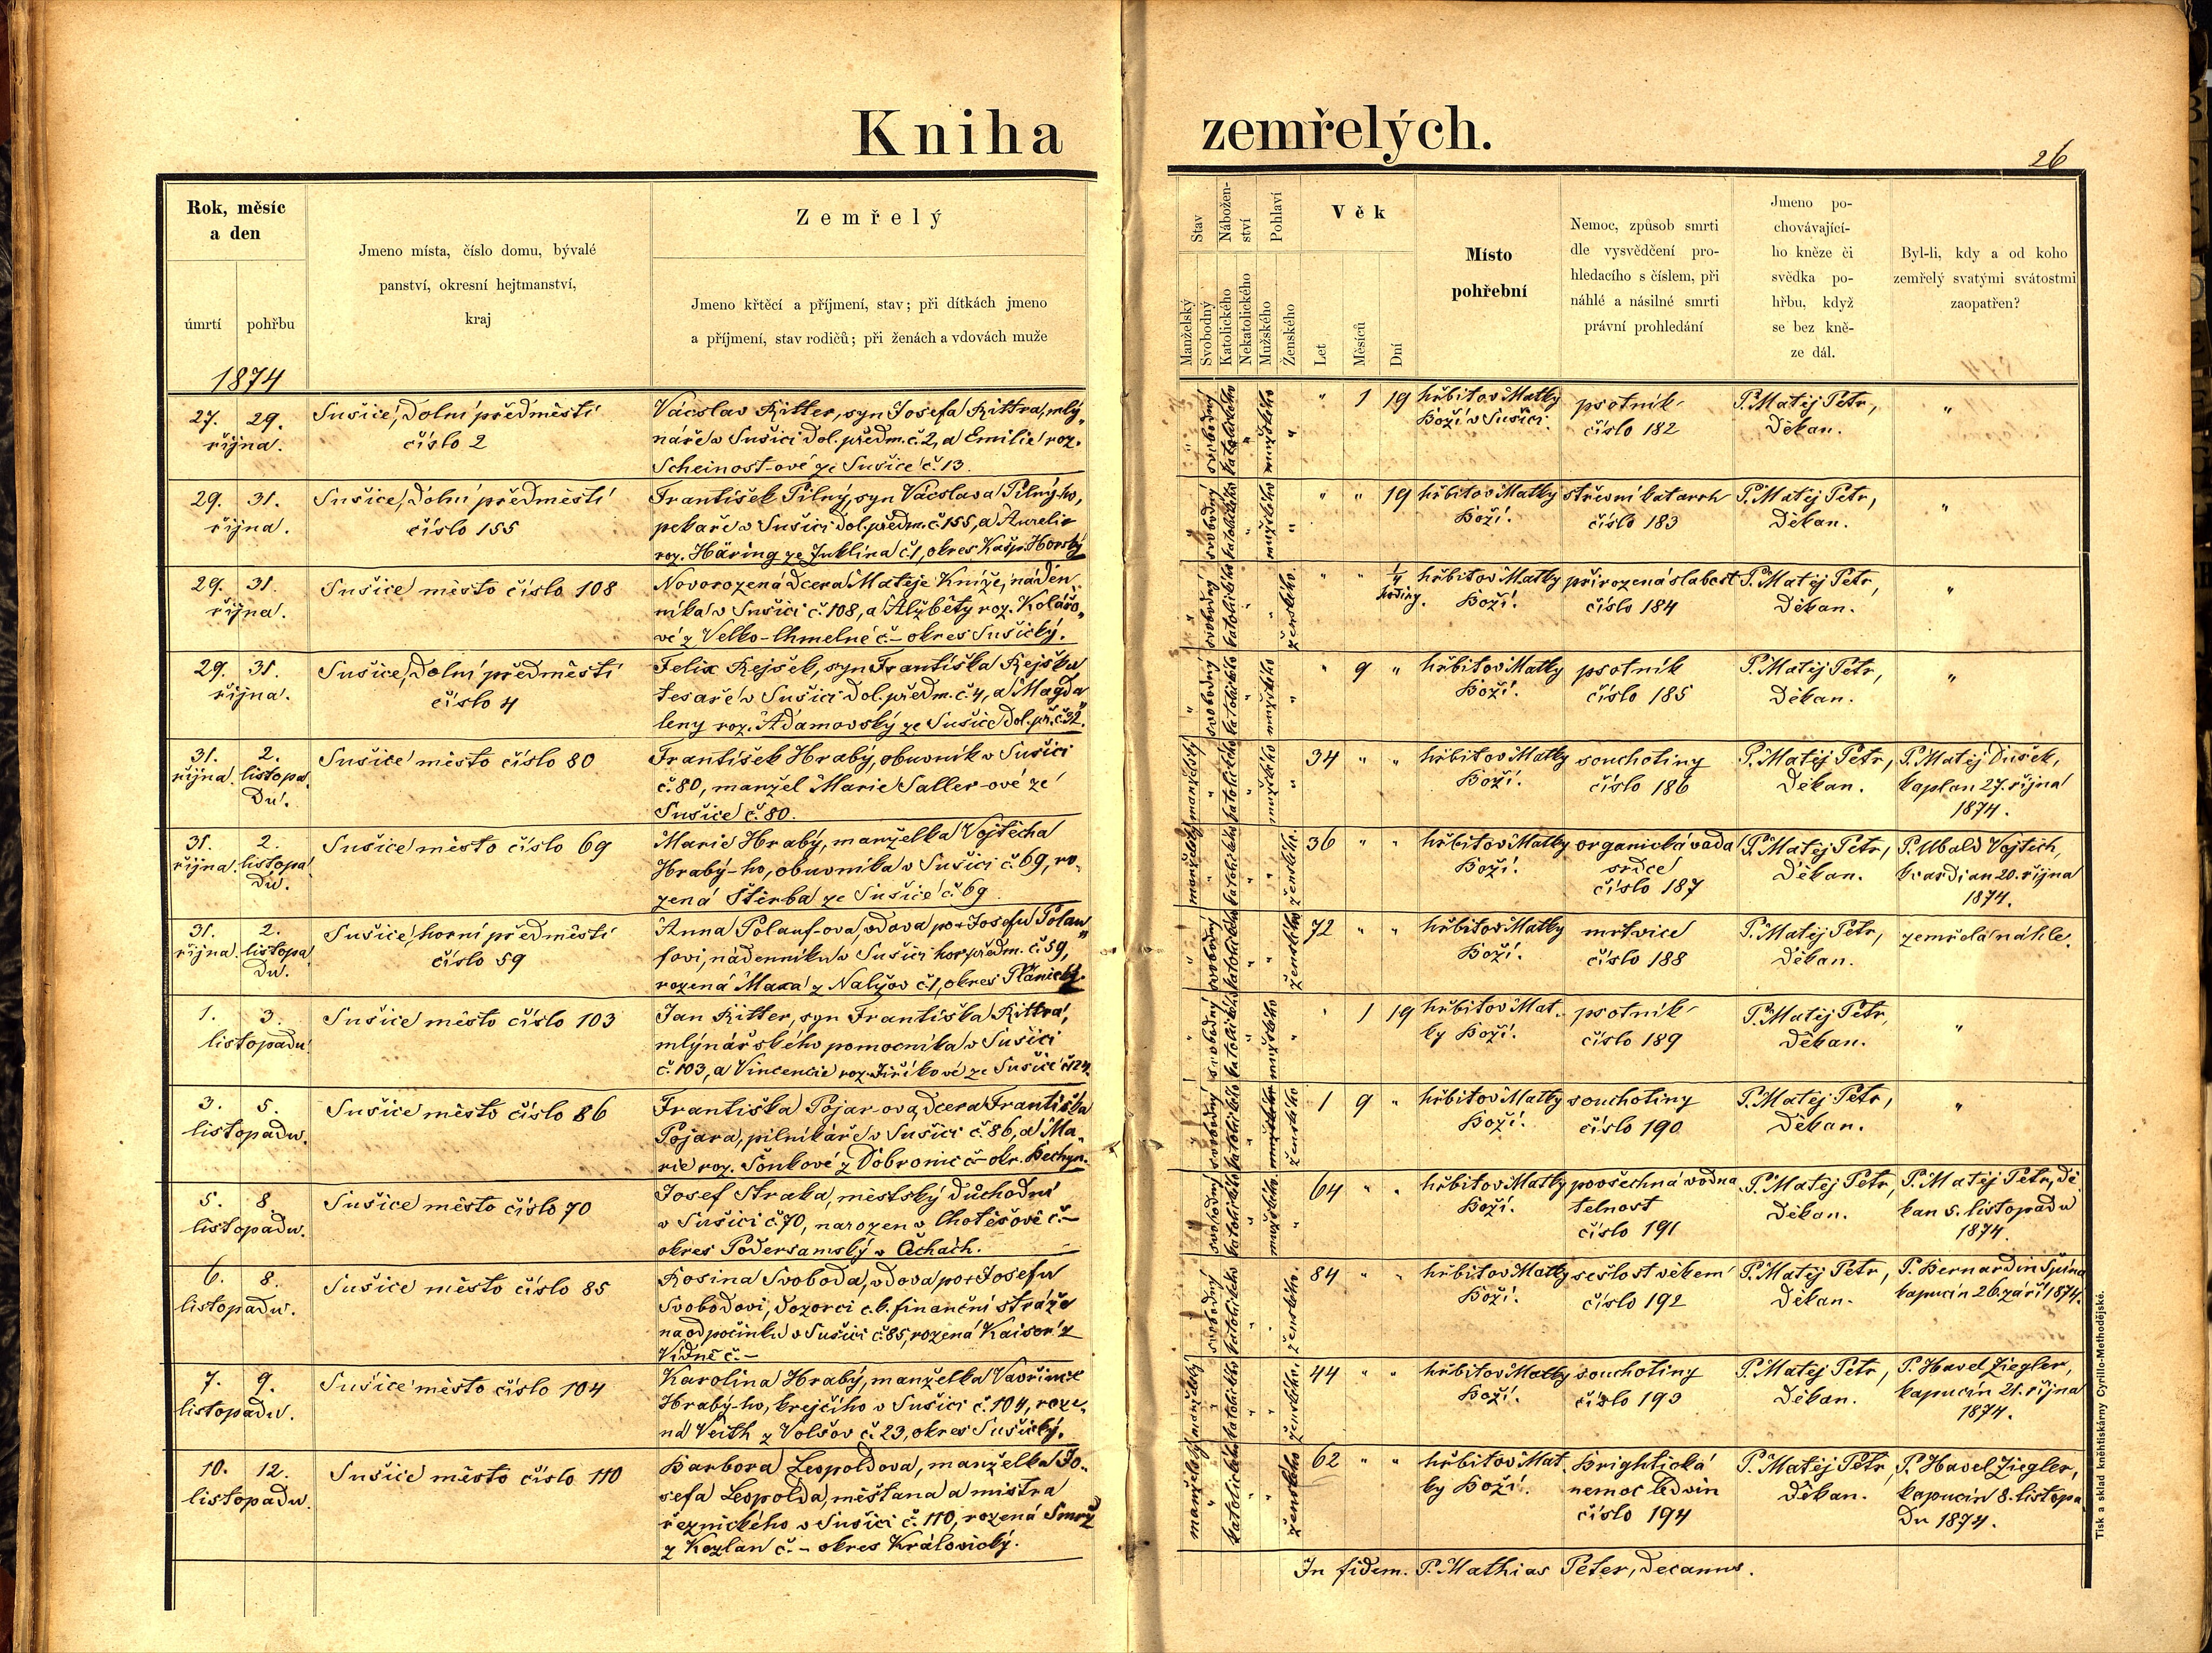 Kniha
zemřelých.
26
Rok, měsíc
a den
úmrtí
pohřbu
Jmeno místa, číslo domu, bývalé
panství, okresní hejtmanství,
kraj
Zemřelý
Jmeno křtěcí a příjmení, stav; při dítkách jmeno
a příjmení, stav rodičů; při ženách a vdovách muže
Stav
Manželský
Svobodný
Nábožen-
ství
Katolického
Nekatolického
Pohlaví
Mužského
Ženského
Věk
Let
Měsíců
Dní
Místo
pohřební
Nemoc, způsob smrti
dle vysvědčení pro-
hledacího s číslem, při
náhlé a násilné smrti
právní prohledání
Jmeno po-
chovávající-
ho kněze či
svědka po-
hřbu, když
se bez kně-
ze dál.
Byl-li, kdy a od koho
zemřelý svatými svátostmi
zaopatřen?
1874
27. 29.
října.
Sušice, Dolní předměstí
číslo 2
Vácslav Ritter, syn Josefa Rittra, mly„
náře v Sušici dol. předm. č. 2, a Emilie roz.
Scheinost-ové ze Sušice č. 13.
svobodný katolického mužského
" 1 19
hřbitov Matky
Boží v Sušici.
psotník
číslo 182
P. Matěj Petr,
Děkan.
"
29. 31.
října.
Sušice, Dolní předměstí
číslo 155
František Pilný, syn Vácslava Pilný-ho,
pekaře v Sušici dol. předm. č. 155, a Aurelie
roz. Häring ze Juklína č. 1, okres Kašp. Horský
svobodný katolického mužského
" " 19
hřbitov Matky
Boží.
střevní katarrh
číslo 183
P. Matěj Petr,
Děkan.
"
29. 31.
října.
Sušice město číslo 108
Novorozená dcera Matěje Kníže, náden„
níka v Sušici č. 108, a Alžběty roz. Kolářo„
vé z Velko-Chmelné č. – okres Sušický.
svobodný katolického ženského
" " 1/4
hodiny.
hřbitov Matky
Boží.
přirozená slabost
číslo 184
P. Matěj Petr,
Děkan.
"
29. 31.
října.
Sušice, Dolní předměstí
číslo 4
Felix Rejšek, syn Františka Rejška
tesaře v Sušici dol. předm. č. 4, a Magda„
leny roz. Adamovský ze Sušice dol. př. č. 32.
svobodný katolického mužského
" 9 "
hřbitov Matky
Boží.
psotník
číslo 185
P. Matěj Petr,
Děkan.
"
31. 2.
října. listopa„
du.
Sušice město číslo 80
František Hrabý, obuvník v Sušici
č. 80, manžel Marie Saller-ové ze
Sušice č. 80.
manželský katolického mužského
34 " "
hřbitov Matky
Boží.
souchotiny
číslo 186
P. Matěj Petr,
Děkan.
P. Matěj Dušek,
kaplan 27. října
1874.
31. 2.
října. listopa„
du.
Sušice město číslo 69
Marie Hrabý, manželka Vojtěcha
Hrabý-ho, obuvníka v Sušici č. 69, ro„
zená Štěrba ze Sušice č. 69.
manželský katolického ženského
36 " "
hřbitov Matky
Boží.
organická vada
srdce
číslo 187
P. Matěj Petr,
Děkan.
P. Ubald Vojtěch,
kvardian 20. října
1874.
31. 2.
října. listopa„
du.
Sušice, horní předměstí
číslo 59
Anna Polauf-ova, vdova po † Josefu Polau„
fovi, nádenníku v Sušici hor. předm. č. 59,
rozená Maxa z Nalžov č. 1, okres Plánický.
svobodný katolického ženského
72 " "
hřbitov Matky
Boží.
mrtvice
číslo 188
P. Matěj Petr,
Děkan.
zemřela náhle.
1. 3.
listopadu.
Sušice město číslo 103
Jan Ritter, syn Františka Rittra,
mlýnářského pomocníka v Sušici
č. 103, a Vincencie roz. Jiříkové ze Sušice č. 124.
svobodný katolického mužského
" 1 19
hřbitov Mat„
ky Boží.
psotník
číslo 189
P. Matěj Petr,
Děkan.
"
3. 5.
listopadu.
Sušice město číslo 86
Františka Pojar-ova, dcera Františka
Pojara, pilníkáře v Sušici č. 86, a Ma„
rie roz. Šonkové z Dobronic č – okr. Bechyn.
svobodný katolického mužského ženského
1 9 "
hřbitov Matky
Boží.
souchotiny
číslo 190
P. Matěj Petr,
Děkan.
"
5. 8.
listopadu.
Sušice město číslo 70
Josef Straka, městský důchodní
v Sušici č. 70, narozen v Chotěšově č. –
okres Podersamský v Čechách.
svobodný katolického mužského
64 " "
hřbitov Matky
Boží.
povšechná vodna„
telnost
číslo 191
P. Matěj Petr,
Děkan.
P. Matěj Petr, dě„
kan 5. listopadu
1874.
6. 8.
listopadu.
Sušice město číslo 85
Rosina Svoboda, vdova po † Josefu
Svobodovi, dozorci c. k. finanční stráže
na odpočinku v Sušici č. 85, rozená Kaisor z
Vídně č. –
svobodný katolického ženského
84 " "
hřbitov Matky
Boží.
sešlost věkem
číslo 192
P. Matěj Petr,
Děkan.
P. Bernardin Špína
kapucín 26. září 1874.
7. 9.
listopadu.
Sušice město číslo 104
Karolina Hrabý, manželka Vavřince
Hrabý-ho, krejčího v Sušici č. 104, roze„
ná Veith z Volšov č. 23, okres Sušický.
manželský katolického ženského
44 " "
hřbitov Matky
Boží.
souchotiny
číslo 193
P. Matěj Petr,
Děkan.
P. Havel Ziegler,
kapucín 21. října
1874.
10. 12.
listopadu.
Sušice město číslo 110
Barbora Leopoldova, manželka Jo„
sefa Leopolda, měšťana a mistra
řeznického v Sušici č. 110, rozená Smrž
z Kozlan č. – okres Královický.
manželský katolického ženského
62 " "
hřbitov Mat„
ky Boží.
Brightická
nemoc ledvin
číslo 194
P. Matěj Petr
Děkan.
P. Havel Ziegler,
kapucín 8. listopa„
du 1874.
In fidem. P. Mathias Peter, Decanus.
Tisk a sklad kněhtiskárny Cyrillo-Methodějské.